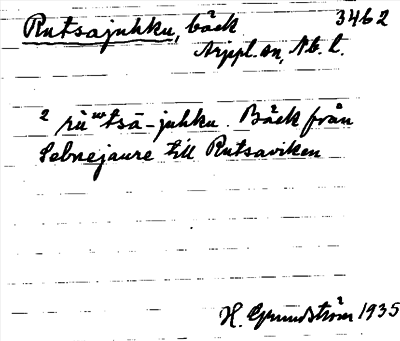 Rutsajuhku, bäck 3462
Arjpl. sn, Nb. l.
² rūʷtsā-juhku. Bäck från
Sebnejaure till Rutsaviken
H. Grundström 1935